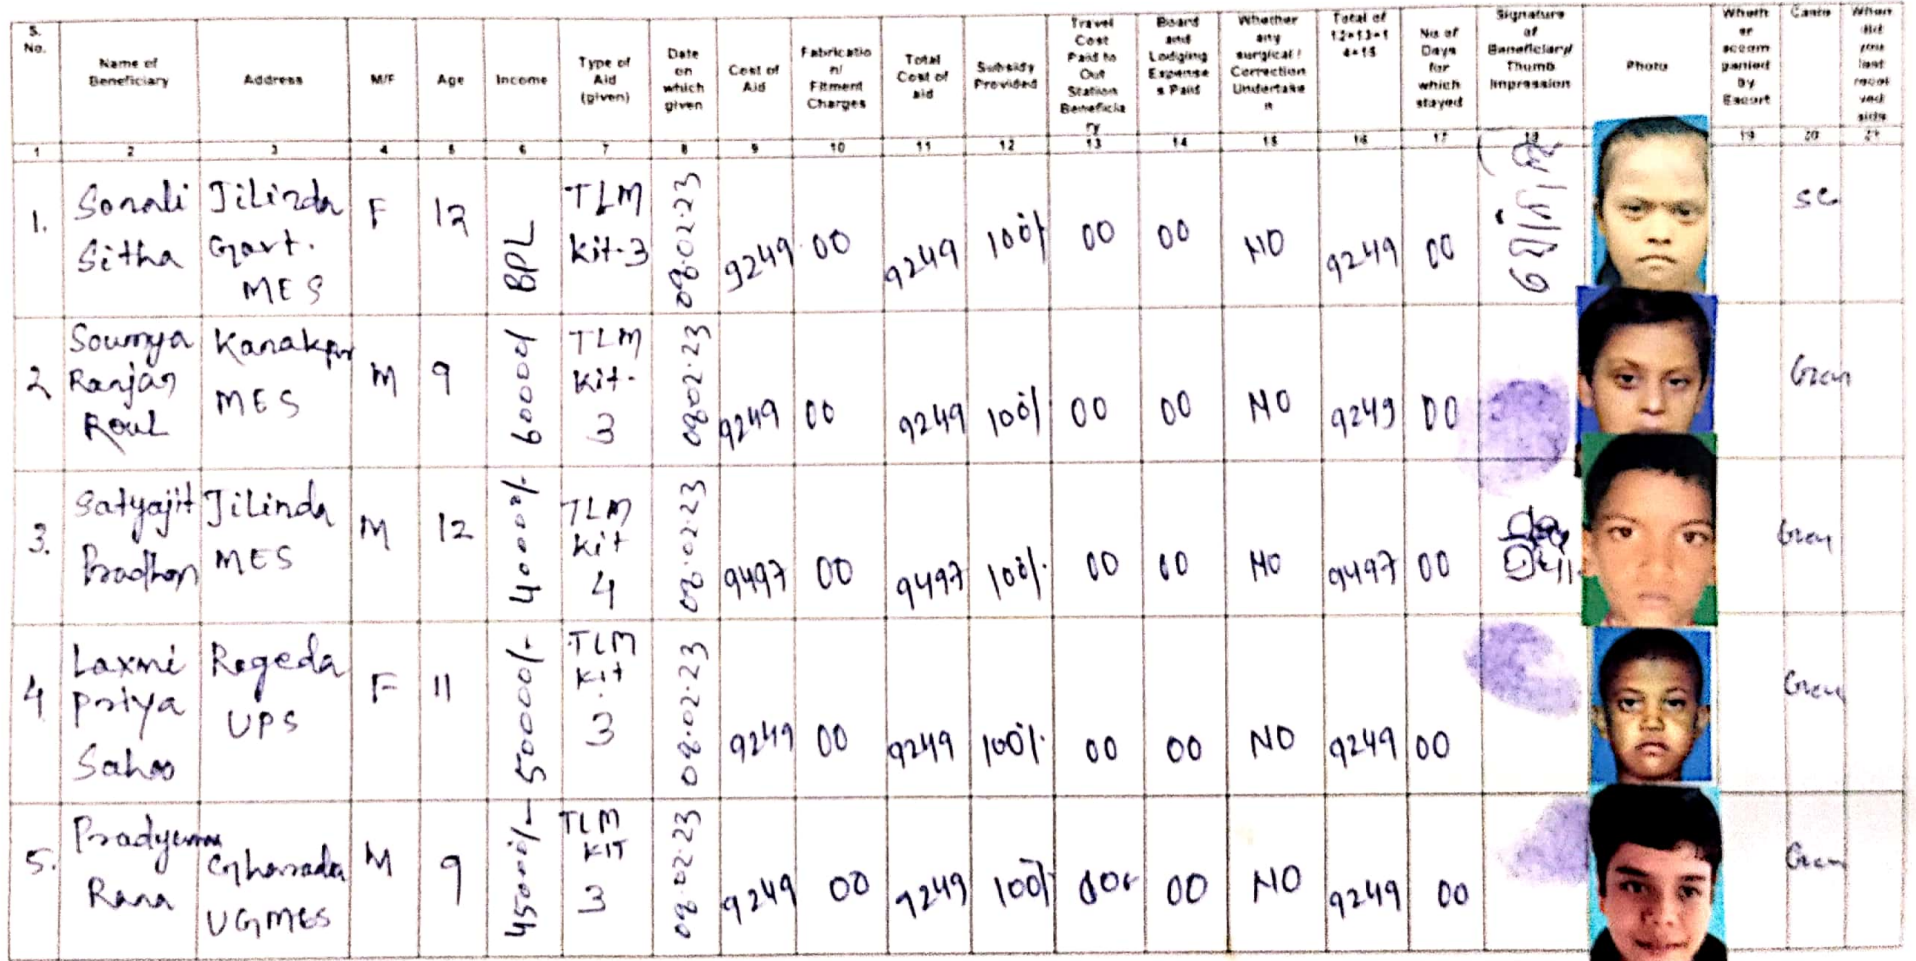 S. No. Name of Beneficiary Address M/F Age Income Type of Aid (given) Date on which given Cost of Aid Fabricatio n/ Fitment Charges Total Cost of aid Subsidy Provided Travel Cost Paid to Out Station Beneficia ry Board and Lodging Expense s Paid Whether any surgical / Correction Undertake n Total of 12+13+1 4+15 No of Days for which stayed Signature of Beneficiary/ Thumb Impression Photo Wheth er accom panied by Escort Caste When did you last recei ved aids
1 2 3 4 5 6 7 8 9 10 11 12 13 14 15 16 17 18 19 20 21
1. Sonali Sitha Jilinda Govt. MES F 12 BPL TLM Kit-3 08.02.23 9249 00 9249 100% 00 00 NO 9249 00 SC
2 Soumya Ranjan Roul Kanakpur MES M 9 60000/ TLM Kit- 3 08.02.23 9249 00 9249 100% 00 00 NO 9249 00 Gen
3. Satyajit Pradhan Jilinda MES M 12 40000/- TLM Kit 4 08.02.23 9497 00 9497 100%. 00 00 NO 9497 00 Gen
4 Laxmi Priya Sahoo Rageda UPS F 11 50000/- TLM Kit 3 08.02.23 9249 00 9249 100%. 00 00 NO 9249 00 Gen
5. Rana UGMES M 9 45000/- TLM KIT 3 08.02.23 9249 00 9249 100% 00 NO 9249 00 Gen